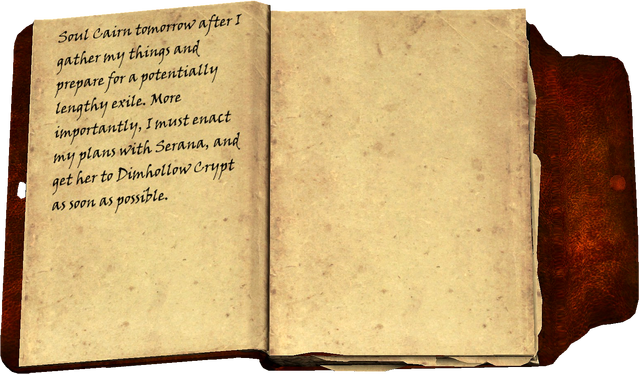 Soul Cairn tomorrow after I
gather my things and
prepare for a potentially
lengthy exile. More
importantly, I must enact
my plans with Serana, and
get her to Dimhollow Crypt
as soon as possible.